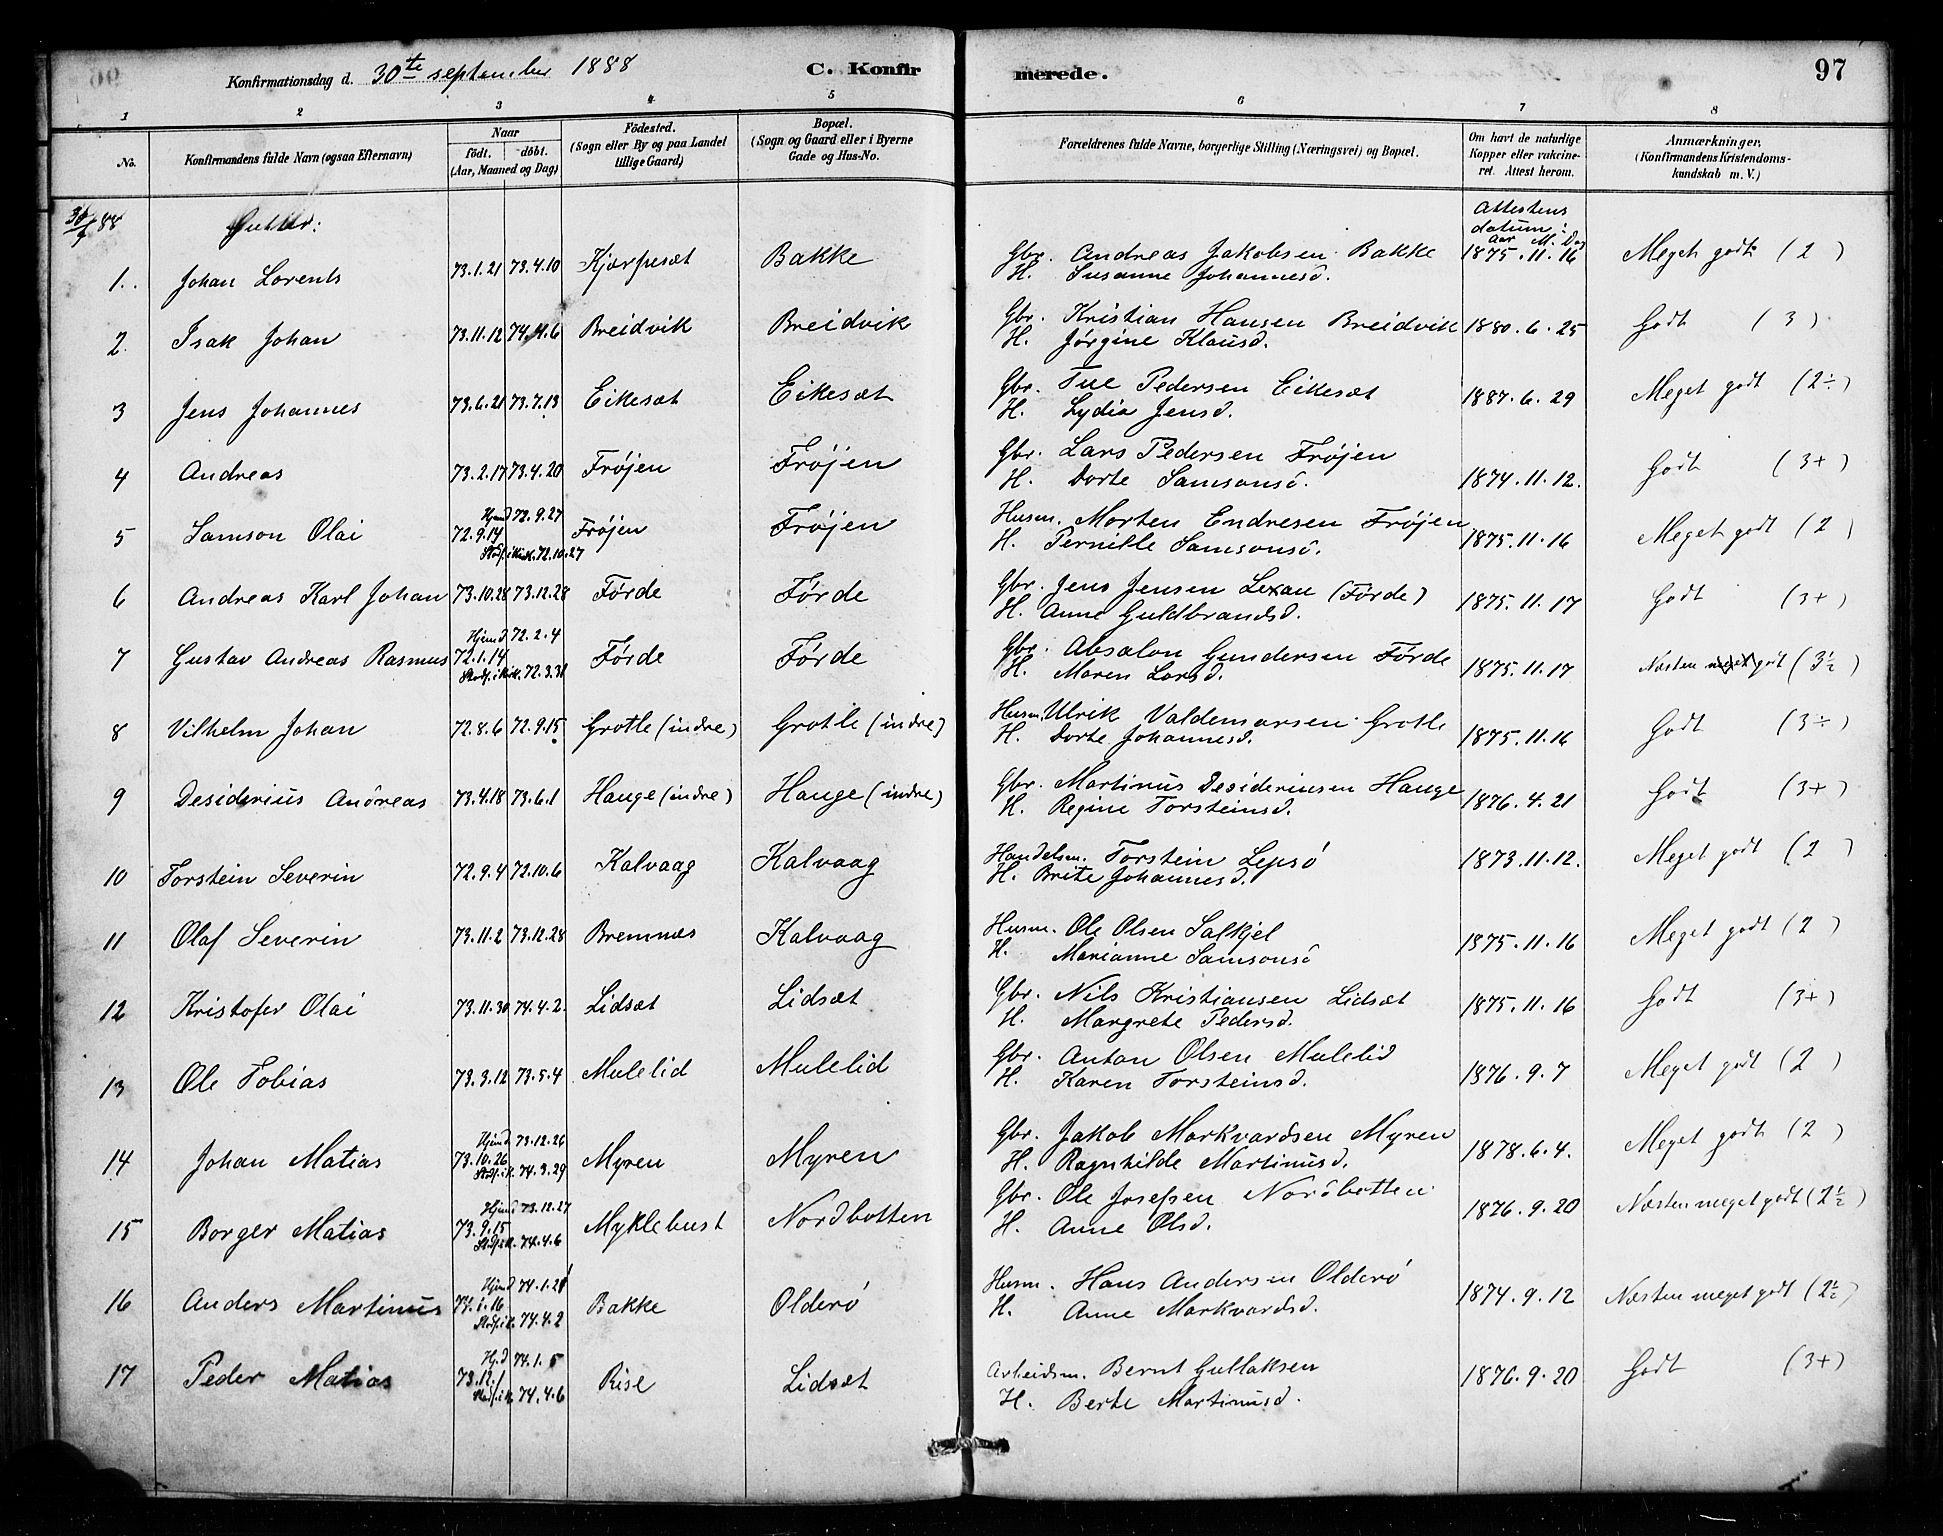 Konfirmationsdag d. 30te september 1888 C. Konfirmerede. 97
1 2 3 4 5 6 7 8
No. Konfirmandens fulde Navn (ogsaa Efternavn) Naar født. døbt. (Aar, Maaned og Dag) Födested. (Sogn eller By og paa Landet tillige Gaard) Bopæl. (Sogn og Gaard eller i Byerne Gade og Hus-No. Forældrenes fulde Navne, borgerlige Stilling (Næringsvei) og Bopæl. Om havt de naturlige Kopper eller vakcineret. Attest herom. Anmærkninger, (Konfirmandens Kristendomskundskab m. V.)
30/9 88 Gutter: Attestens datum: Aar M. Dag
1. Johan Lorents 73.1.21 73.4.10 Kjærpesæt Bakke Gbr. Andreas Jakobsen Bakke 1875.11.16 Meget godt (2)
H. Susanne Johannesd.
2. Isak Johan 73.11.12 74.4.6 Breidvik Breidvik Gbr. Kristian Hansen Breidvik 1880.6.25 Godt (3)
H. Jørgine Klausd.
3 Jens Johannes 73.6.21 73.7.13 Eikesæt Eikesæt Gbr. Tue Pedersen Eikesæt 1887.6.29 Meget godt (2÷)
H. Lydia Jensd.
4 Andreas 73.2.17 73.4.20 Frøjen Frøjen Gbr. Lars Pedersen Frøjen 1874.11.12. Godt (3+)
H. Dorte Samsonsd.
5 Samson Olai 72.9.14 Hjemd 72.9.27 Stadf. i kirk. 72.10.27 Frøjen Frøjen Husm. Morten Endresen Frøjen 1875.11.16 Meget godt (2)
H. Pernille Samsonsd.
6 Andreas Karl Johan 73.10.28 73.12.28 Førde Førde Gbr. Jens Jensen Lexau (Førde) 1875.11.17 Godt (3+)
H. Anne Guldbrandsd.
7 Gustav Andreas Rasmus 72.1.14 Hjemd 72.2.4 Stadf. i kirk. 72.3.31 Førde Førde Gbr. Absalon Gundersen Førde 1875.11.17 Næsten meget godt (3½)
H. Maren Larsd.
8 Vilhelm Johan 72.8.6 72.9.15 Grotle (indre) Grotle (indre) Husm. Ulrik Valdemarsen Grotle 1875.11.16 Godt (3÷)
H. Dorte Johannesd.
9 Desiderius Andreas 73.4.18 73.6.1 Hauge (indre) Hauge (indre) Gbr. Martinus Desideriussen Hauge 1876.4.21 Godt (3+)
H. Regine Torsteinsd.
10 Torstein Severin 72.9.4 72.10.6 Kalvaag Kalvaag Handelsm. Torstein Lepsø 1873.11.12. Meget godt (2)
H. Brite Johannesd.
11 Olaf Severin 73.11.2 73.12.28 Bremnæs Kalvaag Husm. Ole Olsen Salkjel 1875.11.16 Meget godt (2)
H. Marianne Samsonsd
12 Kristofer Olai 73.11.30 74.4.2. Lidsæt Lidsæt Gbr. Nils Kristiansen Lidsæt 1875.11.16 Godt (3+)
H. Margrete Pedersd.
13 Ole Tobias 73.3.12 73.5.4 Mulelid Mulelid Gbr. Anton Olsen Mulelid 1876.9.7 Meget godt (2)
H. Karen Torsteinsd.
14 Johan Matias 73.10.26 Hjemd. 73.12.26 Stadf. i k. 74.3.29 Myren Myren Gbr. Jakob Markvardsen Myren 1878.6.4. Meget godt (2)
H. Ragnhilde Martinusd.
15 Borger Matias 73.9.15 Hjemd 73.12.27 Stadf. i k. 74.4.6 Myklebust Nordbotten Gbr. Ole Josefsen Nordbotten 1876.9.20 Næsten meget godt (2½)
H. Anne Olsd.
16 Anders Martinus 74.1.16 Hjemd 74.1.21 Stadf. i k. 74.4.2 Bakke Olderø Husm. Hans Andersen Olderø 1874.9.12 Næsten meget godt (2½)
H. Anne Markvardsd.
17 Peder Matias 73.12.1 Hj.d 74.1.5 Stadf. i k. 74.4.6 Rise Lidsæt Arbeidsm. Bernt Gullaksen 1876.9.20 Godt (3+)
H. Berte Martinusd.